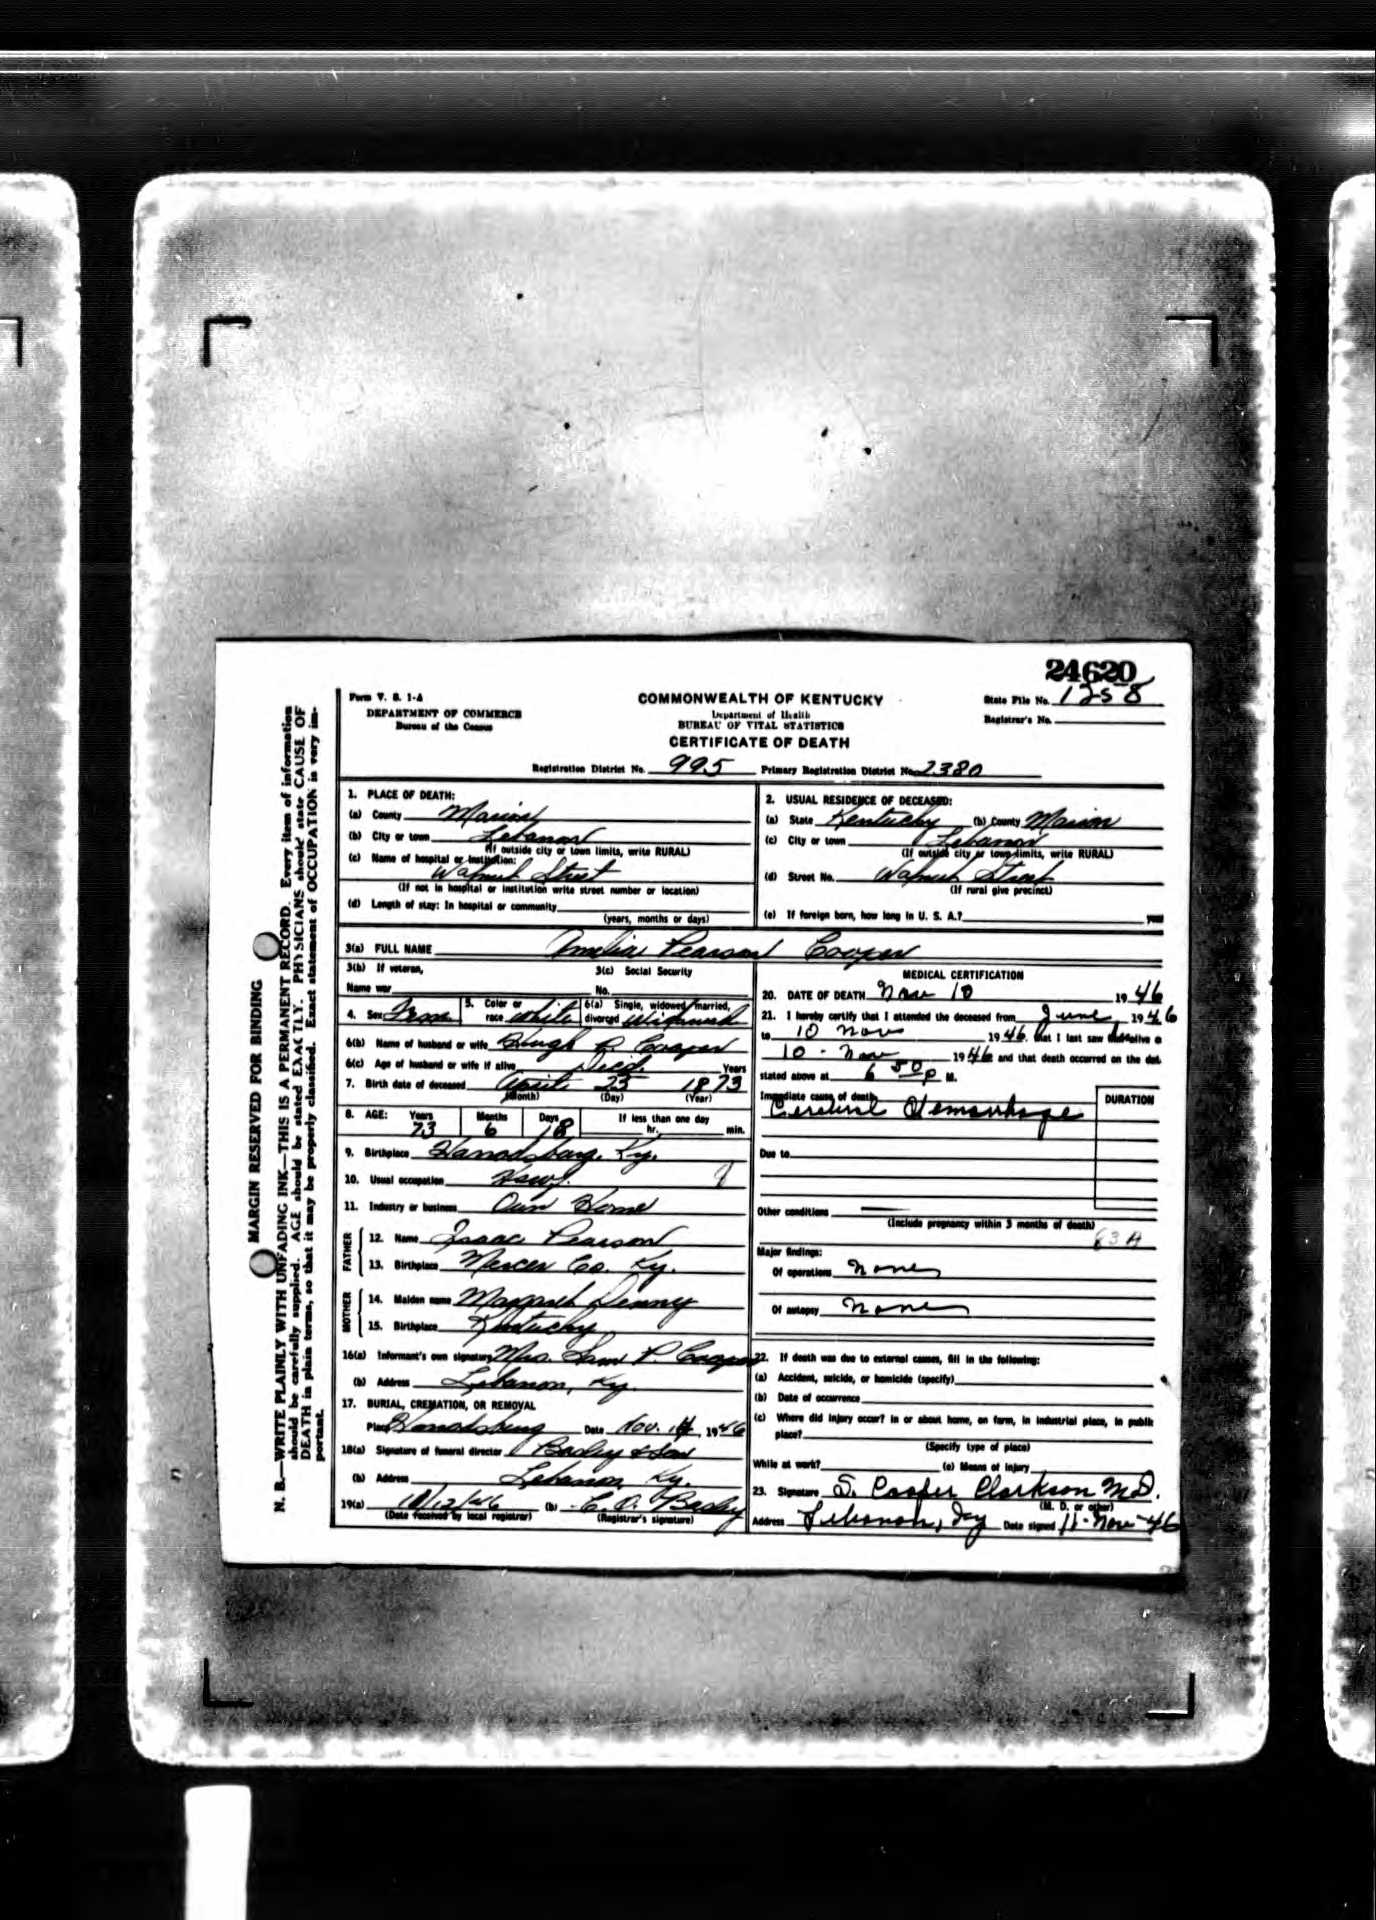 24620
Form V. S. 1-A
COMMONWEALTH OF KENTUCKY
State File No. 1258
DEPARTMENT OF COMMERCE
Department of Health
Bureau of the Census
BUREAU OF VITAL STATISTICS
Registrar's No.
CERTIFICATE OF DEATH
Registration District No. 995 Primary Registration District No. 2380
MARGIN RESERVED FOR BINDING
N. B.—WRITE PLAINLY WITH UNFADING INK—THIS IS A PERMANENT RECORD. Every item of information
should be carefully supplied. AGE should be stated EXACTLY. PHYSICIANS should state CAUSE OF
DEATH in plain terms, so that it may be properly classified. Exact statement of OCCUPATION is very im-
portant.
1. PLACE OF DEATH:
(a) County Marion
(b) City or town Lebanon
(If outside city or town limits, write RURAL)
(c) Name of hospital or institution:
Walnut Street
(If not in hospital or institution write street number or location)
(d) Length of stay: In hospital or community
(years, months or days)
2. USUAL RESIDENCE OF DECEASED:
(a) State Kentucky (b) County Marion
(c) City or town Lebanon
(If outside city or town limits, write RURAL)
(d) Street No. Walnut Street
(If rural give precinct)
(e) If foreign born, how long in U. S. A.? years
3(a) FULL NAME Amelia Pearson Cooper
3(b) If veteran, 3(c) Social Security
Name war No.
4. Sex Fem 5. Color or race White 6(a) Single, widowed, married, divorced Widowed
6(b) Name of husband or wife Hugh P. Cooper
6(c) Age of husband or wife if alive Died. Years
7. Birth date of deceased April 23 1873
(Month) (Day) (Year)
8. AGE: Years Months Days If less than one day
73 6 18 hr. min.
9. Birthplace Harrodsburg, Ky.
10. Usual occupation Hswf.
11. Industry or business Own Home
FATHER
12. Name Isaac Pearson
13. Birthplace Mercer Co. Ky.
MOTHER
14. Maiden name Margaret Denny
15. Birthplace Kentucky
16(a) Informant's own signature Mrs. Sam P. Cooper
(b) Address Lebanon, Ky.
17. BURIAL, CREMATION, OR REMOVAL
Place Harrodsburg Date Nov. , 1946
18(a) Signature of funeral director Bosley & Son
(b) Address Lebanon Ky.
19(a) /12/46 (b) C. O. Bosley
(Date received by local registrar) (Registrar's signature)
MEDICAL CERTIFICATION
20. DATE OF DEATH Nov 10 1946
21. I hereby certify that I attended the deceased from June 1946
to 10 Nov 1946. that I last saw alive o
10 - Nov 1946 and that death occurred on the dat
stated above at 6 50 P M.
Immediate cause of death DURATION
Cerebral Hemorrhage
Due to
Other conditions
(Include pregnancy within 3 months of death)
83 A
Major findings:
Of operations None
Of autopsy None
22. If death was due to external causes, fill in the following:
(a) Accident, suicide, or homicide (specify)
(b) Date of occurrence
(c) Where did injury occur? In or about home, on farm, in industrial place, in public
place?
(Specify type of place)
While at work? (e) Means of injury
23. Signature S. Cooper Clarkson M.D.
(M. D. or other)
Address Lebanon, Ky Date signed 11-Nov-46